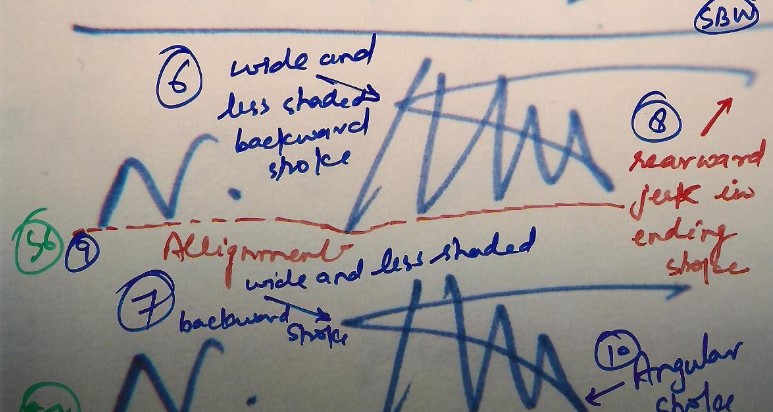 SBW
6 wide and
less shaded
backward
stroke
N.
8
rearward
jerk in
ending
stroke
S6 9
Allignment
7 wide and less shaded
backward stroke
N.
10 Angular
stroke